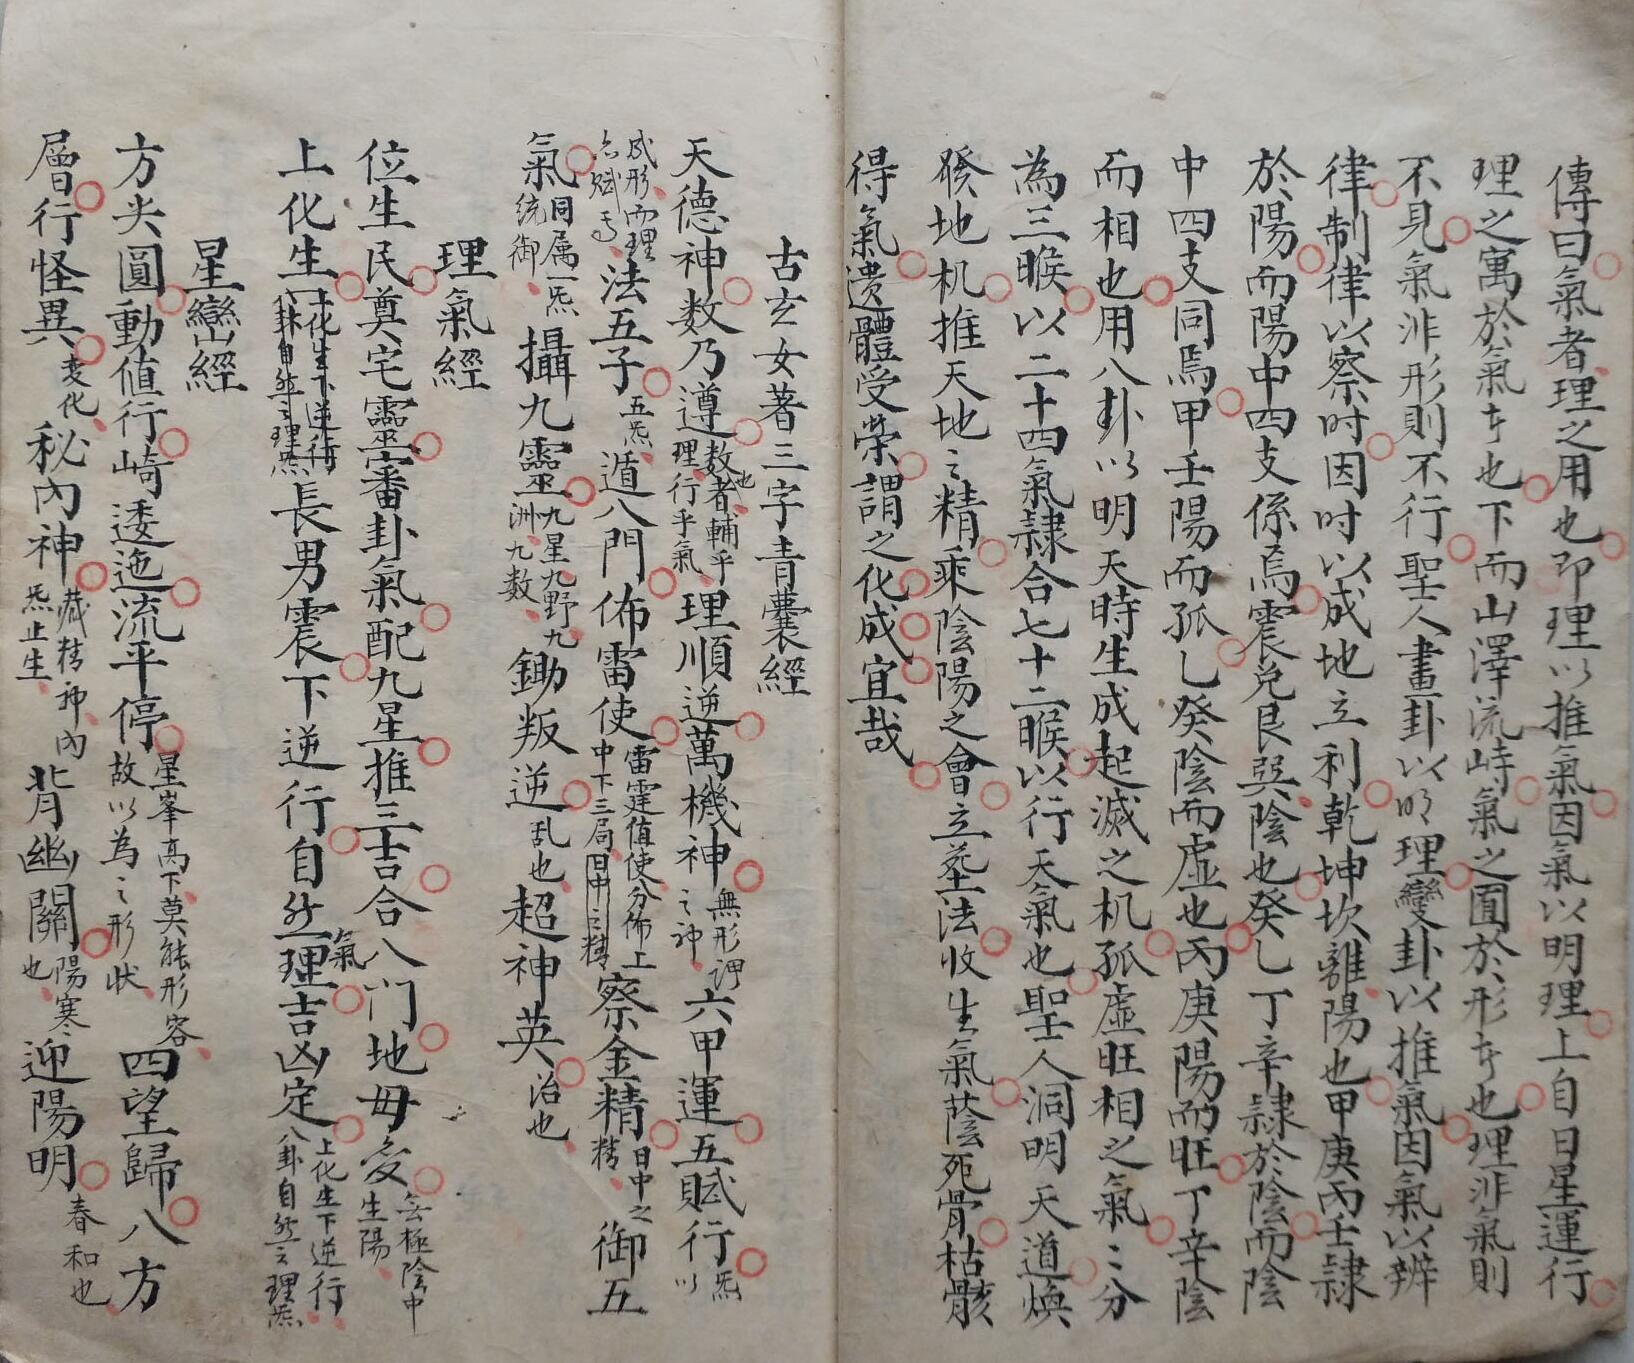 傳曰氣者理之用也即理以推氣因氣以明理上自日星運行
理之寓於氣者也下而山澤流峙氣之圓於形者也理非氣則
不見氣非形則不行聖人畫卦以明理變卦以推氣因氣以辨
律制律以察時因时以成地立利乾坤坎離陽也甲庚丙壬隸
於陽而陽中四支係焉震兌艮巽陰也癸乙丁辛隸於陰而陰
中四支同焉甲壬陽而孤乙癸陰而虛也丙庚陽而旺丁辛陰
而相也用八卦以明天時生成起滅之机孤虛旺相之氣〻分
為三睺以二十四氣隸合七十二睺以行天氣也聖人洞明天道煥
發地机推天地之精乘陰陽之會立葬法收生氣蔭死骨枯骸
得氣遗體受荣謂之化成宜哉
古玄女著三字青囊經
天德神数乃遵数者輔乎理行乎氣也理順逆萬機神無形謂之神六甲運五賦行炁以
成形而理亦赋焉法五子五炁遁八門佈雷使雷霆值使分佈上中下三局日中之精察金精日中之精御五
氣同属一炁统御攝九靈九星九野九洲九数鋤叛逆乱也超神英治也
理氣經
位生民奠宅靈審卦氣配九星推三吉合八门地母爰無極陰中生陽
上化生上化生下逆行八卦自然之理炁長男震下逆行自然理氣吉凶定上化生下逆行八卦自然之理炁
星巒經
方尖圓動值行崎逶迤流平停星峯高下莫能形容故以為之形状四望歸八方
層行怪異变化秘內神藏精神內炁止生背幽關陽寒也迎陽明春和也